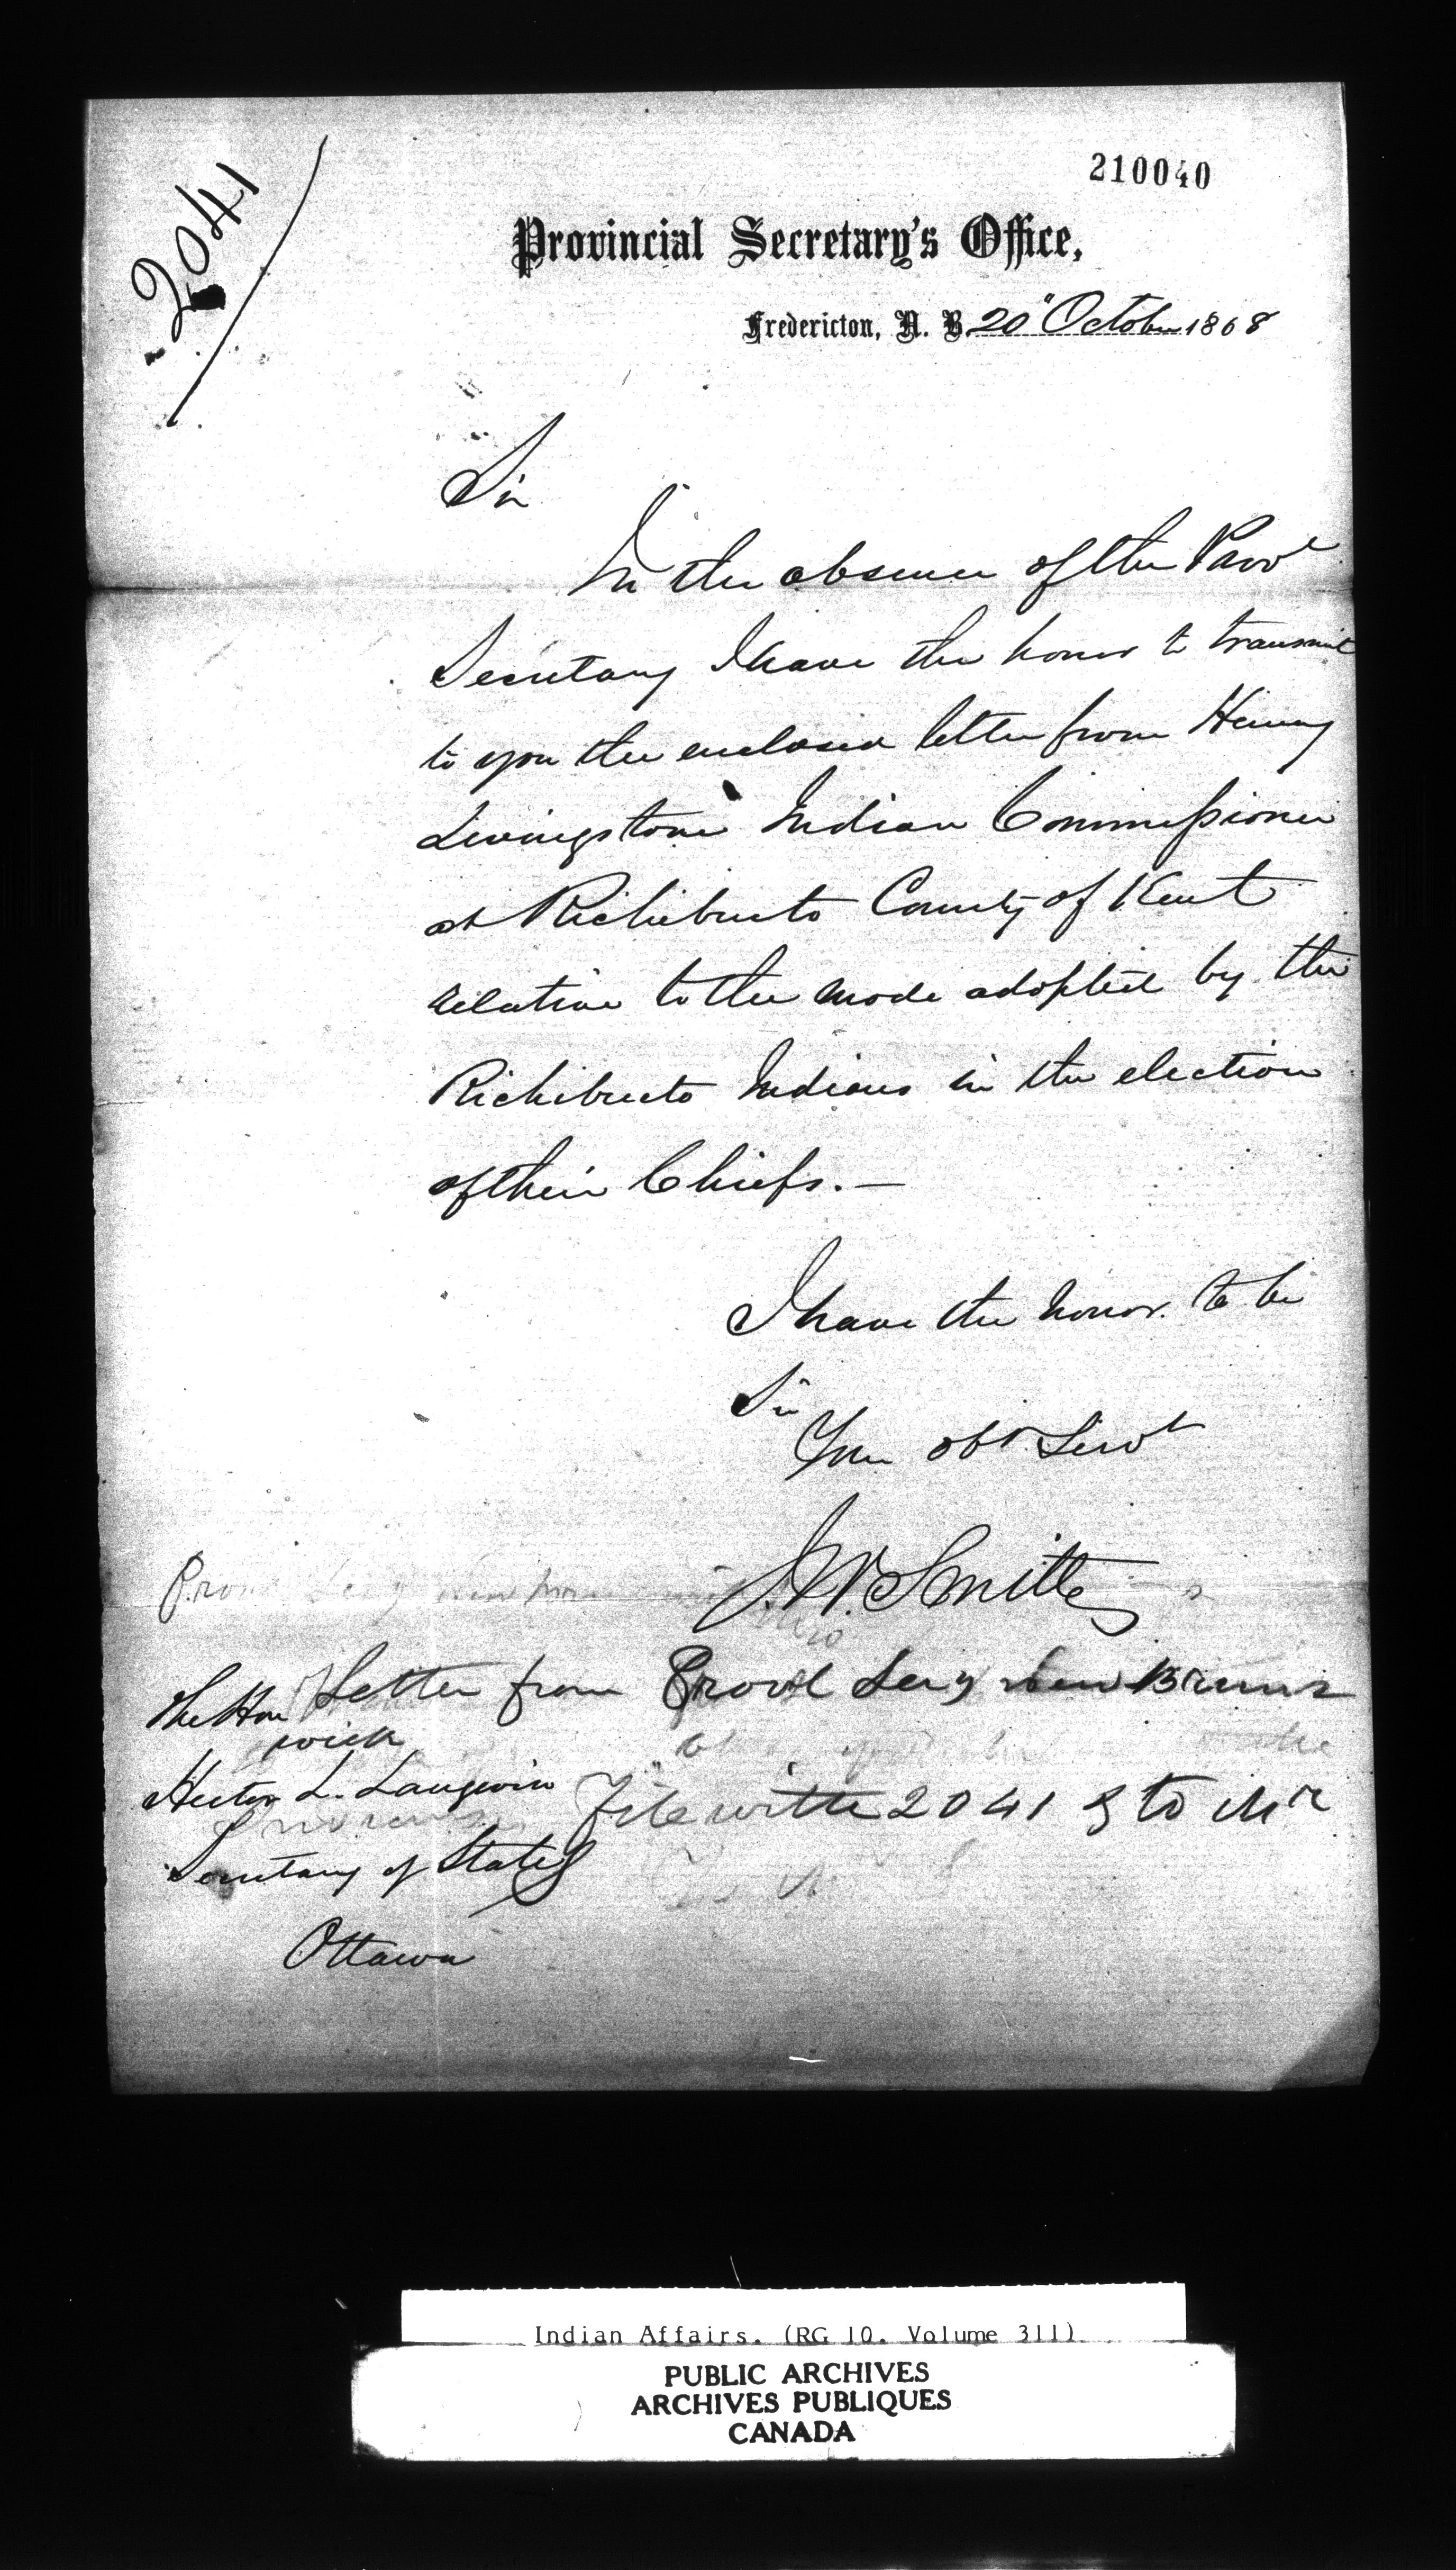 2041
210040
Provincial Secretary's Office,
Fredericton, N. B. 20" October 1868
Sir
In the absence of the Provl
Secretary I have the honor to transmit
to you the enclosed letter from Henry
Livingstone Indian Commissioner
at Richibucto County of Kent
relative to the mode adopted by the
Richibucto Indians in the election
of their Chiefs. —
I have the honor to be
Sir
Your obt Servt
J. W. Smith
Letter from Provl Secy New Bruns
wick
File with 2041 & to Mr
The Hon
Hector L. Langevin
Secretary of State
Ottawa
Indian Affairs. (RG 10. Volume 311)
PUBLIC ARCHIVES
ARCHIVES PUBLIQUES
CANADA